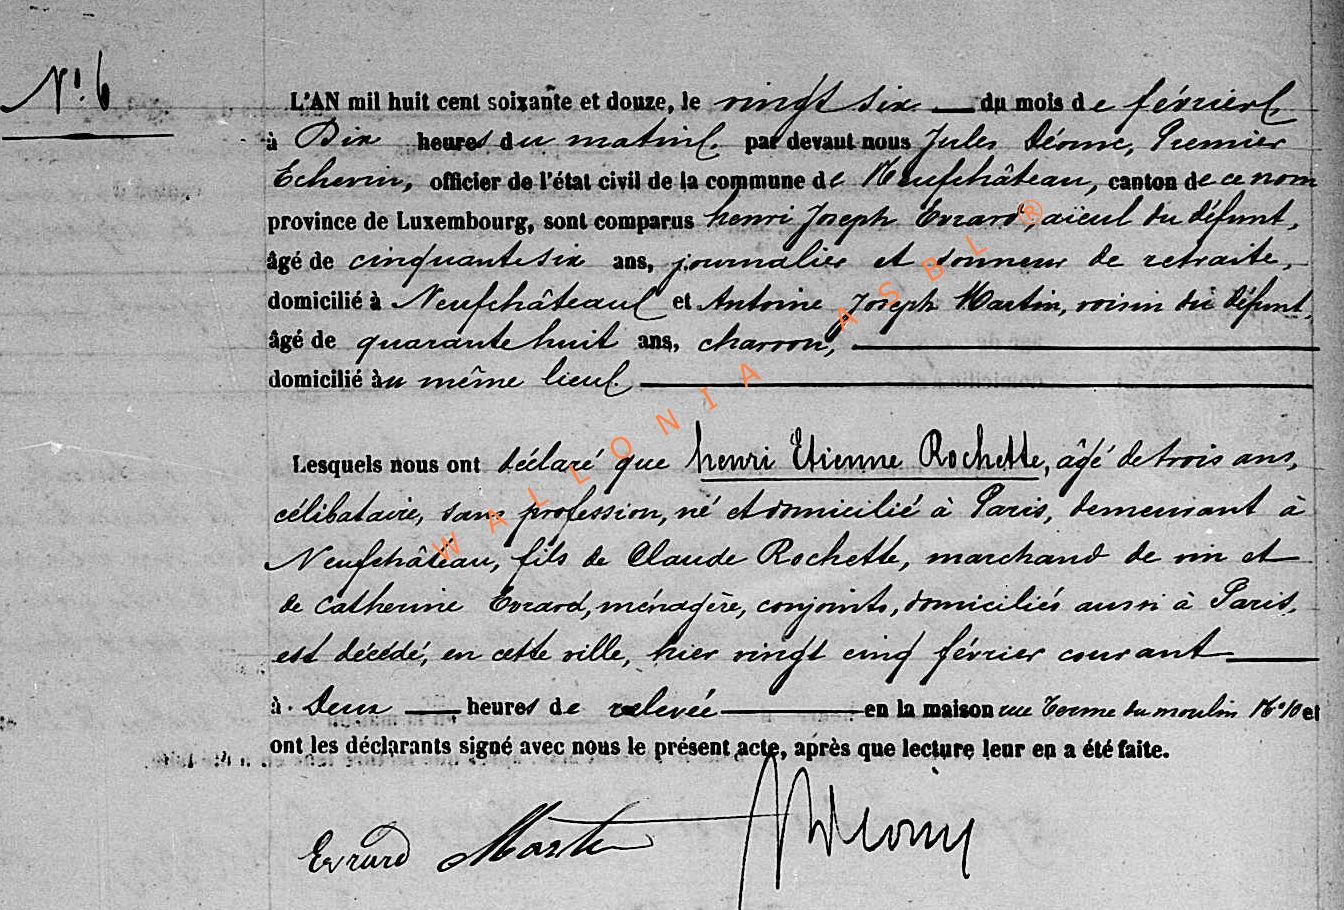 N° 6
L'AN mil huit cent soixante et douze, le vingt six du mois de février
à Dix heures du matin, par devant nous Jules Déome, Premier
Echevin, officier de l'état civil de la commune de Neufchâteau, canton de ce nom
province de Luxembourg, sont comparus henri Joseph Evrard, aïeul du défunt,
âgé de cinquante six ans, journalier et sonneur de retraite,
domicilié à Neufchâteau et Antoine Joseph Martin, voisin du défunt,
âgé de quarante huit ans, charron,
domicilié au même lieu.
Lesquels nous ont déclaré que henri Etienne Rochette, âgé de trois ans,
célibataire, sans profession, né et domicilié à Paris, demeurant à
Neufchâteau, fils de Claude Rochette, marchand de vin et
de Catherine Evrard, ménagère, conjoints, domiciliés aussi à Paris,
est décédé, en cette ville, hier vingt cinq février courant
à Deux heures de relevée en la maison rue Terme du moulin N° 10 et
ont les déclarants signé avec nous le présent acte, après que lecture leur en a été faite.
Evrard Martin JDéome
WALLONIA ASBL ®